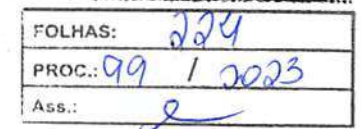 FOLHAS: 224
PROC.: 99 / 2023
Ass.: